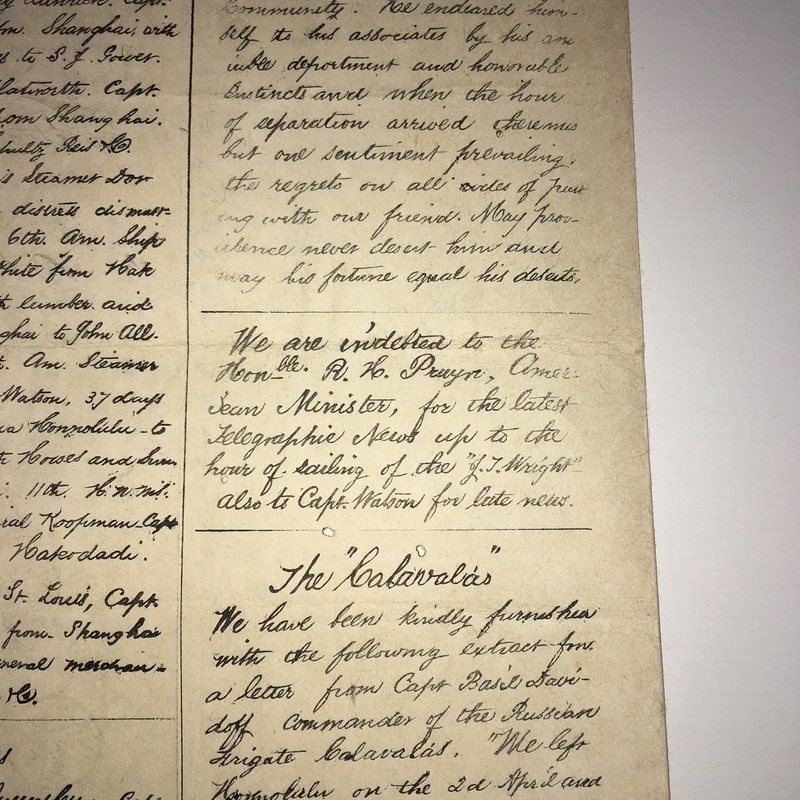 m. Shanghai, with
s to S. J. Gower.
Capt.
om Shanghai.
hultz Reis & Co.
is Steamer Dor
distress dismast-
6th. Am. Ship
hite from Hak
th lumber and
ghai to John All-
t. Am. Steamer
Watson, 37 days
ia Honnolulu - to
h Howes and
11th. H. N. M's.
ral Koopman Capt
Hakodadi.
St. Louis, Capt.
from Shangha
neral merchan-
Co.
s
Community. He endeared him-
self to his associates by his am
iable deportment and honorable
instincts and when the hour
of separation arrived there was
but one sentiment prevailing,
the regrets on all sides of part
ing with our friend. May prov-
idence never desert him and
may his fortune equal his deserts.
We are indebted to the
Honble. R. H. Pruyn, Amer-
ican Minister, for the latest
Telegraphic News up to the
hour of sailing of the "J. T. Wright"
also to Capt. Watson for late news.
The "Calavalás"
We have been kindly furnished
with the following extract from
a letter from Capt Basil Davi-
doff commander of the Russian
frigate Calavalás. "We left
Honnolulu on the 2d April and